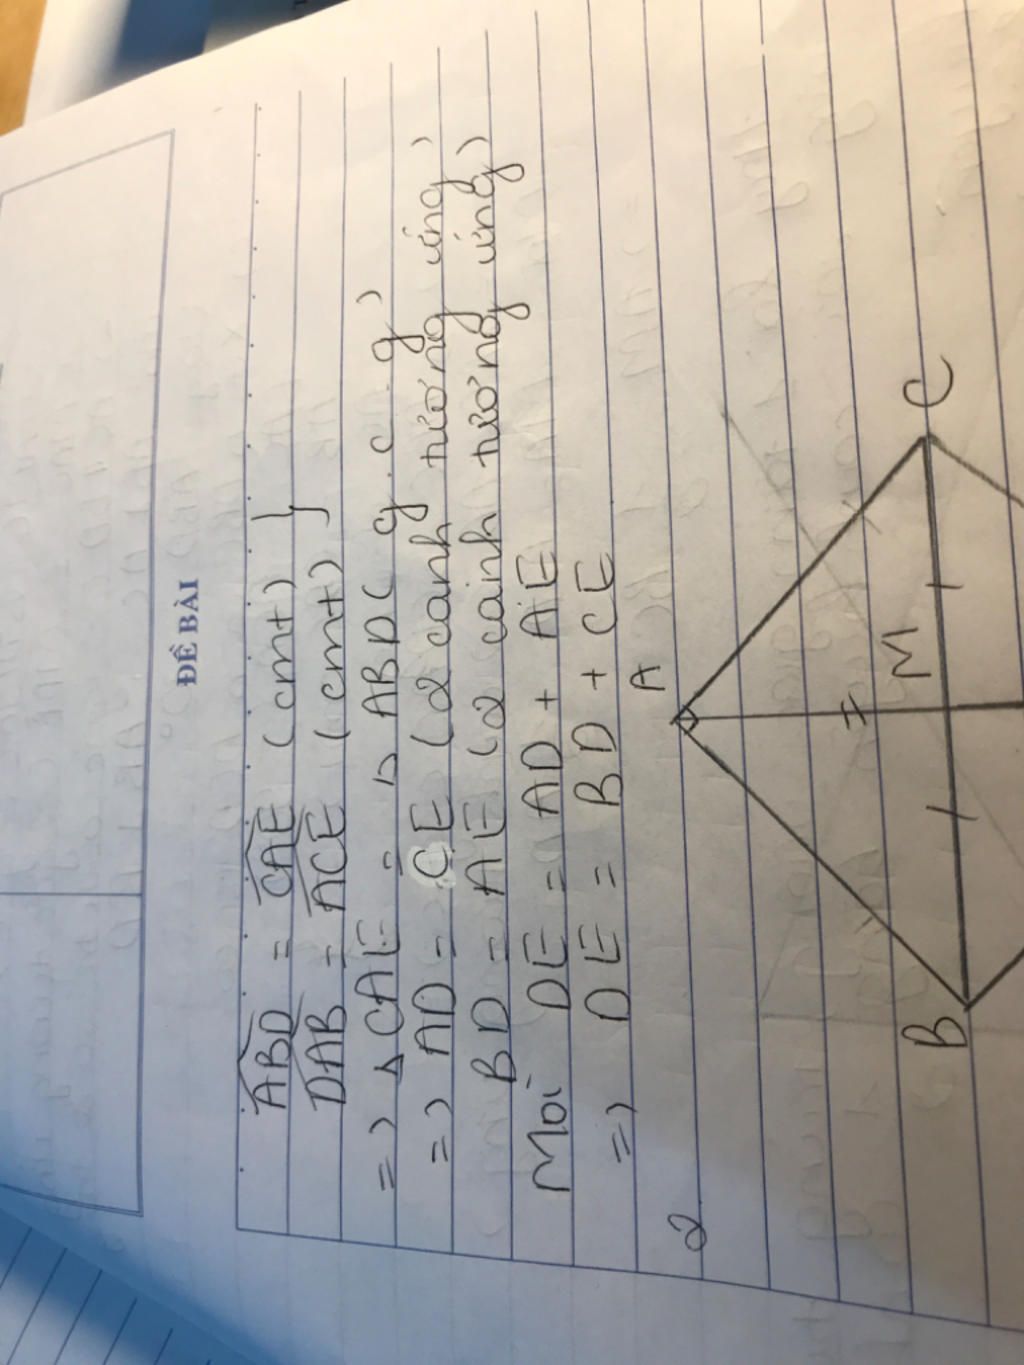 ĐỀ BÀI
ABD = CAE (cmt) }
DAB = ACE (cmt)
=> △ CAE = △ ABD ( g.c.g )
=> AD = CE (2 cạnh tương ứng )
BD = AE (2 cạnh tương ứng )
Mơi DE = AD + AE
=> DE = BD + CE
2
A
M
B
C